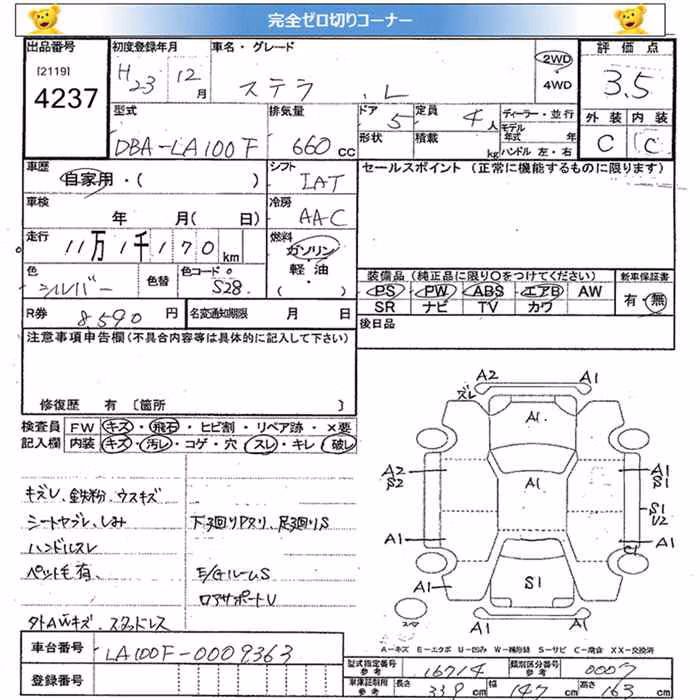 完全ゼロ切りコーナー
出品番号
[2119]
4237
初度登録年月
H23 12月
車名・グレード
ステラ L
2WD
4WD
評価点
3.5
外装 内装
C C
型式
DBA-LA100F
排気量
660cc
ドア
5
形状
定員
4人
積載
kg
ディーラー・並行
モデル年式 年
ハンドル 左・右
車歴
自家用・( )
シフト
IAT
セールスポイント (正常に機能するものに限ります)
車検
年 月( 日)
冷房
AAC
走行
11万1千170km
燃料
ガソリン・
軽油・
( )
色
シルバー
色替
色コード
S28
装備品(純正品に限り○をつけてください)
PS PW ABS エアB AW
SR ナビ TV カワ
新車保証書
有・無
R券
8,590円
名変通知期限 月 日
後日品
注意事項申告欄(不具合内容等は具体的に記入して下さい)
修復歴 有 〔箇所 〕
検査員
記入欄
FW キズ・飛石・ヒビ割・リペア跡・×要
内装 キズ・汚レ・コゲ・穴・スレ・キレ・破レ
キズU、鉄粉、ウスキズ
シートヤブレ、しみ
下廻りPスリ、足廻りS
ハンドルスレ
ペット毛有
E/GルームS
ロアサポートU
外AWキズ、スタッドレス
A2 A1
ズレ
A1
A1
A2
S2
A1
S1
U2
A1
A1
C1
A1
S1
A1
A1
スペア
A-キズ E-エクボ U-凹み W-補修跡 S-サビ C-腐食 XX-交換済
車台番号
LA100F-0009363
登録番号
型式指定番号
参考
16714
類別区分番号
参考
0007
車庫証明用
参考
長さ 339cm
幅 147cm
高さ 163cm